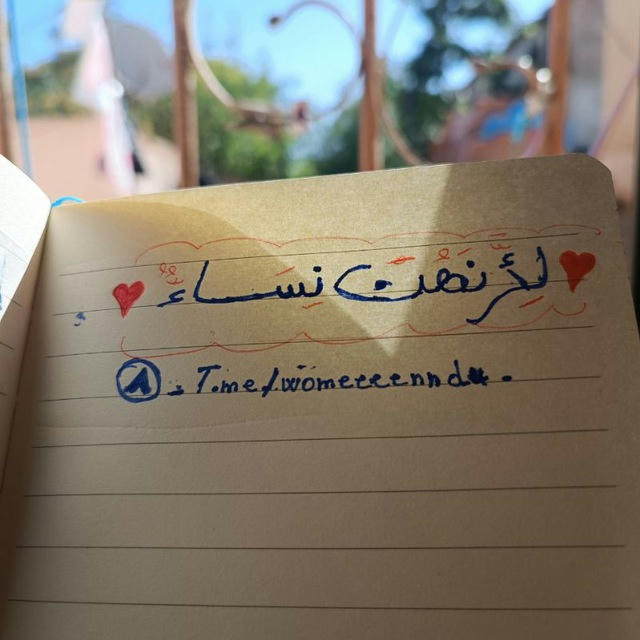 لِأَنَّهُنَّ نِسَاءٌ
1. T.me/womeeeennd.